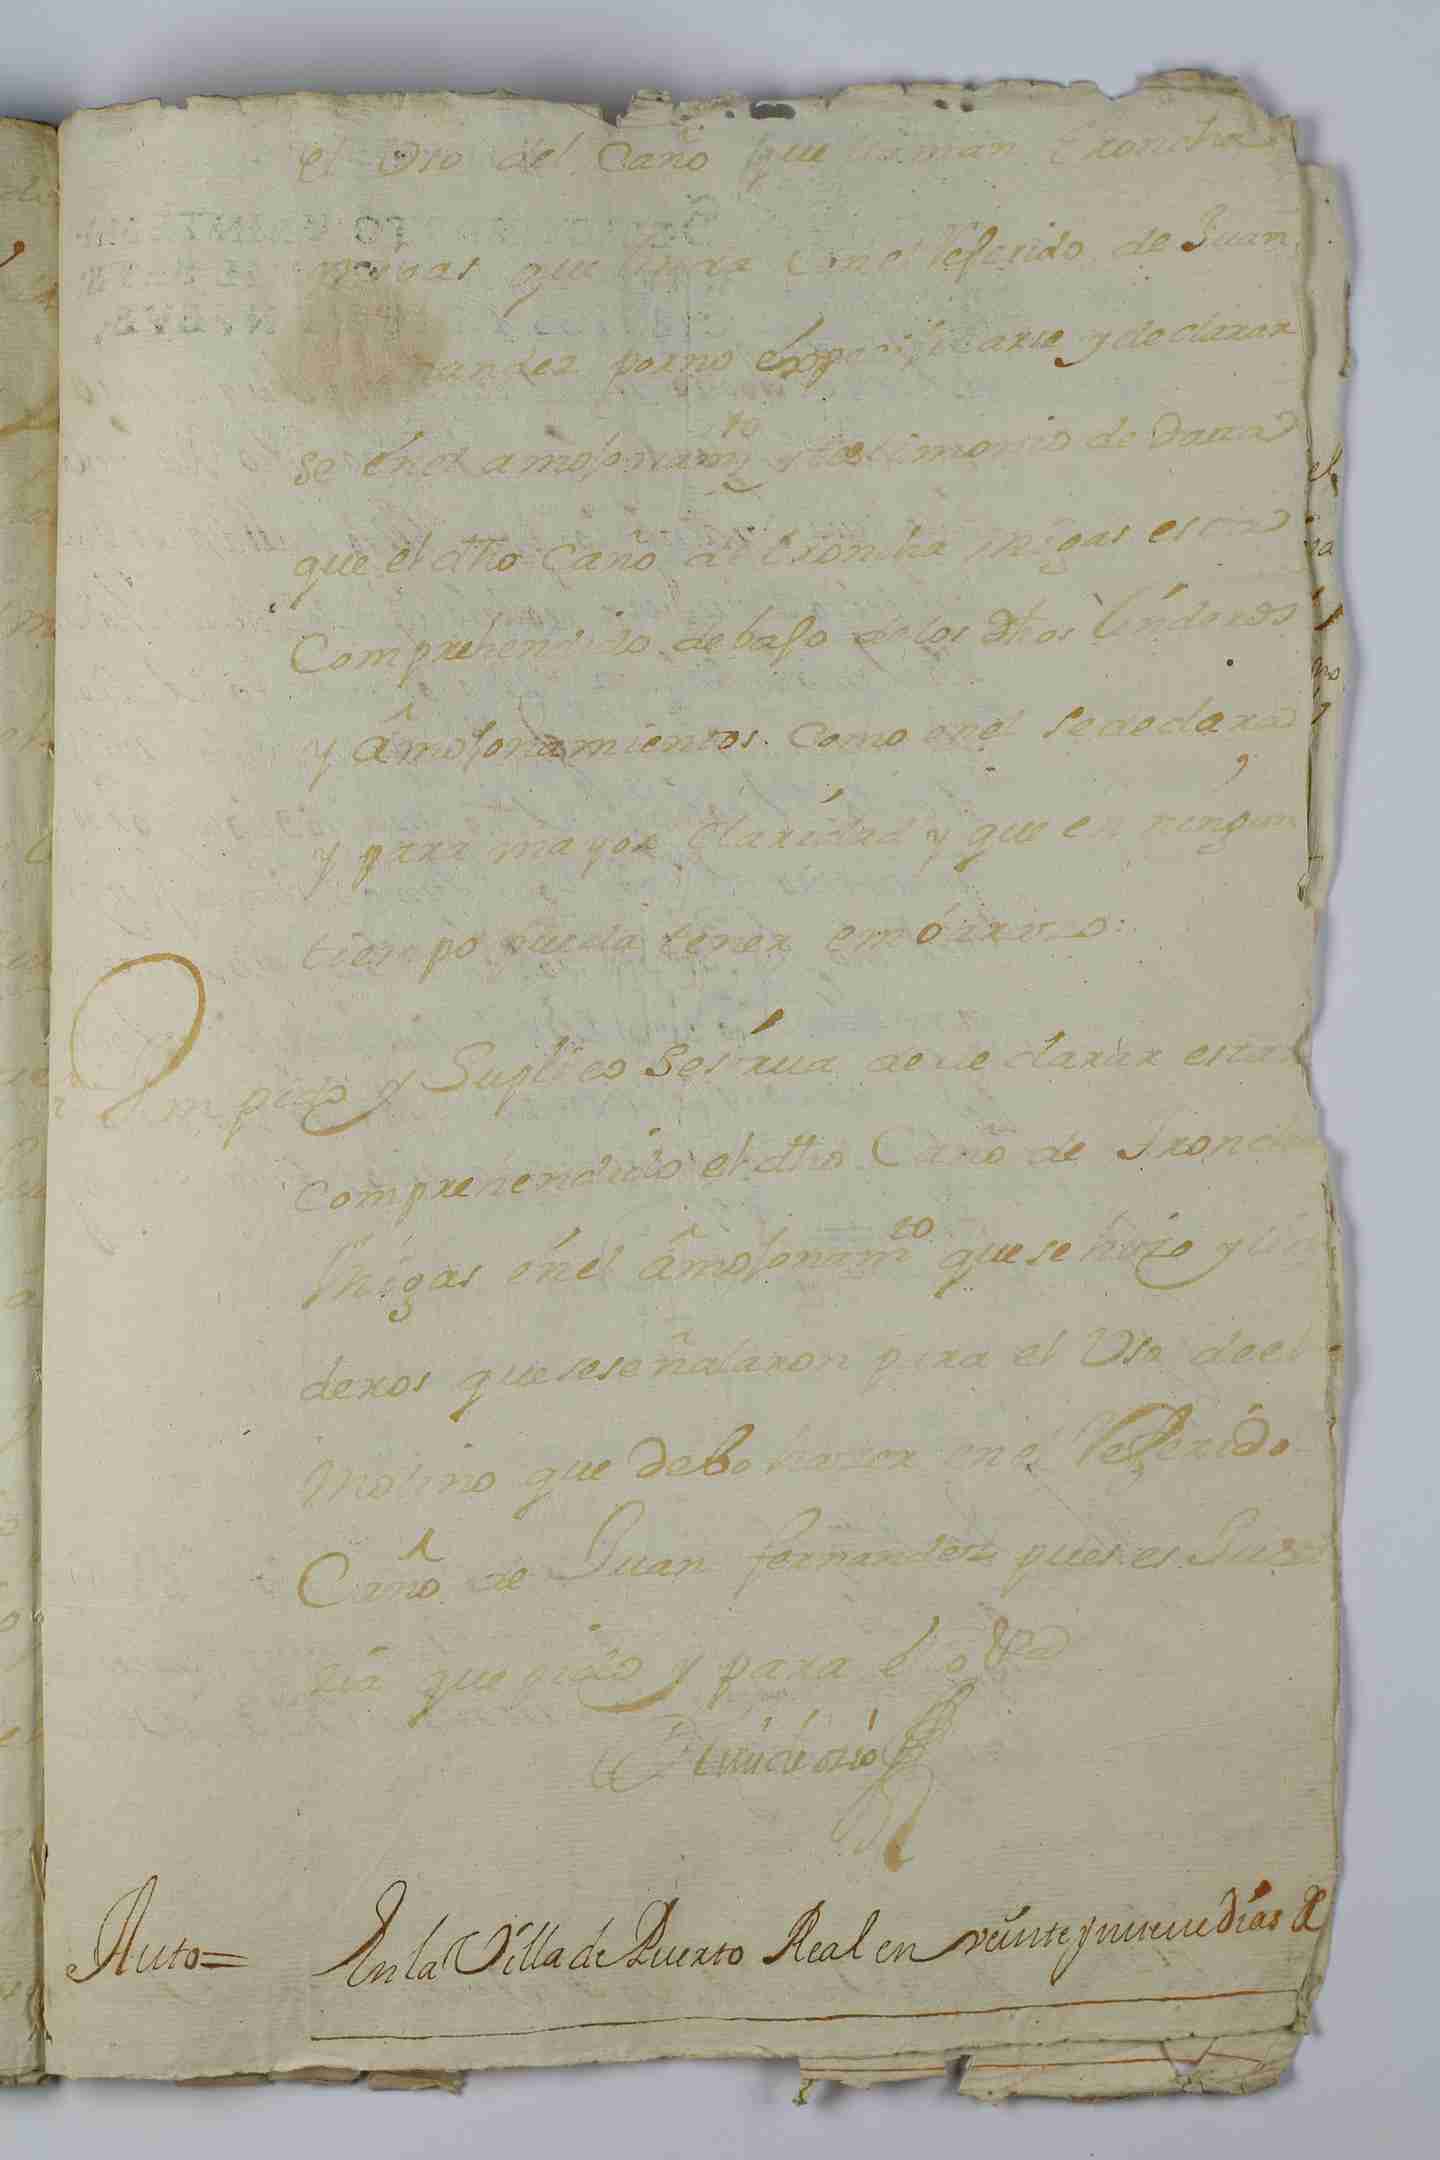 el Uso del Caño que llaman Troncha
migas que linda con el Referido de Juan
nandez porno expecificarse y declarar
se énel amojonamto y testimonio de data
que el dho Caño de troncha migas esta
Comprehendido debajo delos dhos Linderos
y âmojonamientos. Como en el se declara
y para mayor Claridad y que en ningun
tiempo pueda tener emôrazo:
Vm pido y Suplico Seŝirua de declarar estar
comprehendido el dho Caño de Tronch
Migas énel âmojonamto que se hizo y lin
deros que se señalaron para el Uso de el
Molino que Debo hazer en el Referido
Caño de Juan fernandez pues es Justi
zia que pido y para ello
Auto= En la Villa de Puerto Real en veinte y nueve dias de